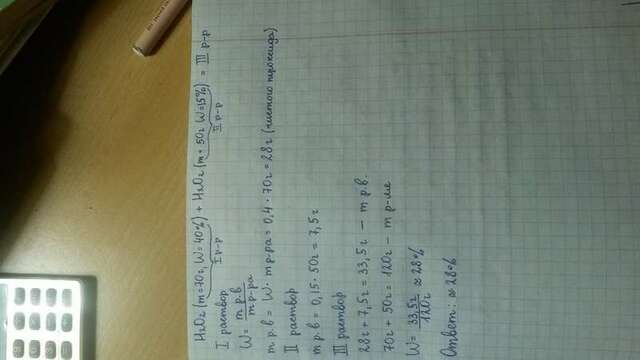 H₂O₂ (m=70г, W=40%) + H₂O₂ (m=50г W=15%) = III р-р
I р-р II р-р
I раствор
W = m р.в / m р-ра
m р.в = W · m р-ра = 0,4 · 70г = 28г (чистого пероксида)
II раствор
m р.в = 0,15 · 50г = 7,5г
III раствор
28г + 7,5г = 33,5г — m р.в.
70г + 50г = 120г — m р-ра
W = 33,5г / 120г ≈ 28%
Ответ: ≈ 28%